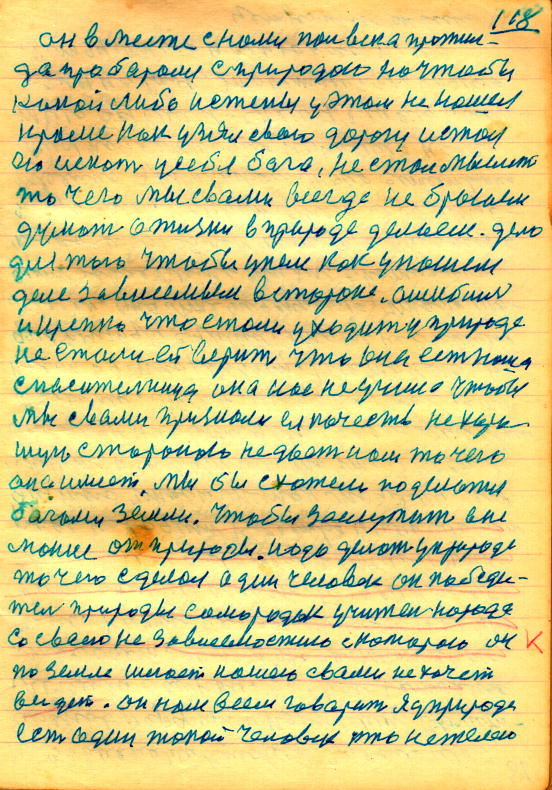 118
он вместе с нами пол века прожил-
да пробароли с природаю но чтобы
какой либо истены у этом не нашел
кроме как узял сваю дорогу и стал
его искат усебя бога, не стал мыслит
то чего мы свами всегда не бросаем
думат о жизни в природе делаем. дело
для того чтобы унем как унашем
деле зависемым в стороне. ошибил
и крепко что стали уходит у природе
не стали ей верит что она ест наша
спасителница она нас не учила чтобы
мы свами признали ея почесть не хоро
шую стораною не дает нам то чего
она имеет. мы бы схотели поделатся
богами земли. чтобы заслужит вне
можно от природы. надо делат уприроде
то чего сделал один человек он победи-
тел природы самородок учител народа
со сваею не зависемостию скоторою он
по земле шагает нашею свами не хочет
видет. он нам всем говарит я уприроде
ест один такой человек кто не желаю